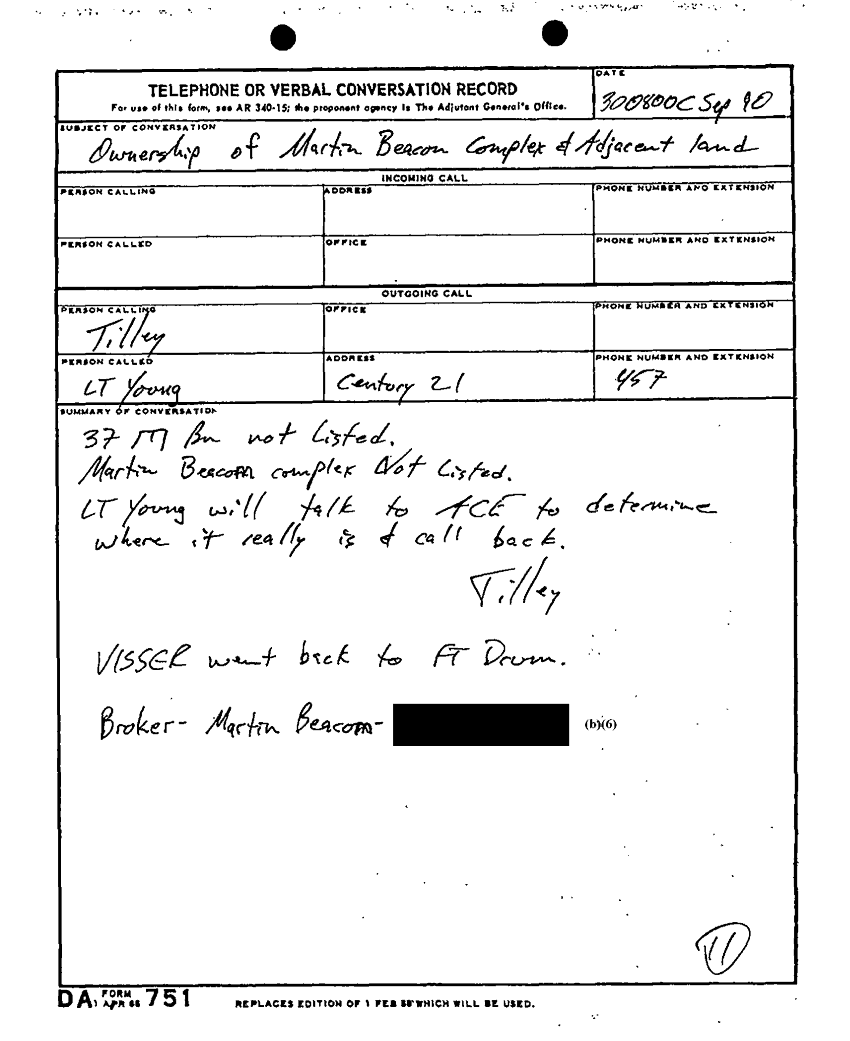 TELEPHONE OR VERBAL CONVERSATION RECORD
For use of this form, see AR 340-15; the proponent agency is The Adjutant General's Office.
DATE
300800C Sep 90
SUBJECT OF CONVERSATION
Ownership of Martin Beacon Complex & Adjacent land
INCOMING CALL
PERSON CALLING
ADDRESS
PHONE NUMBER AND EXTENSION
PERSON CALLED
OFFICE
PHONE NUMBER AND EXTENSION
OUTGOING CALL
PERSON CALLING
Tilley
OFFICE
PHONE NUMBER AND EXTENSION
PERSON CALLED
LT Young
ADDRESS
Century 21
PHONE NUMBER AND EXTENSION
457
SUMMARY OF CONVERSATION
37 Bn not Listed.
Martin Beacom complex Not Listed.
LT Young will talk to ACE to determine
where it really is & call back.
Tilley
VISSER went back to FT Drum.
Broker- Martin Beacom-
(b)(6)
11
DA FORM 751
1 APR 66
REPLACES EDITION OF 1 FEB 58 WHICH WILL BE USED.